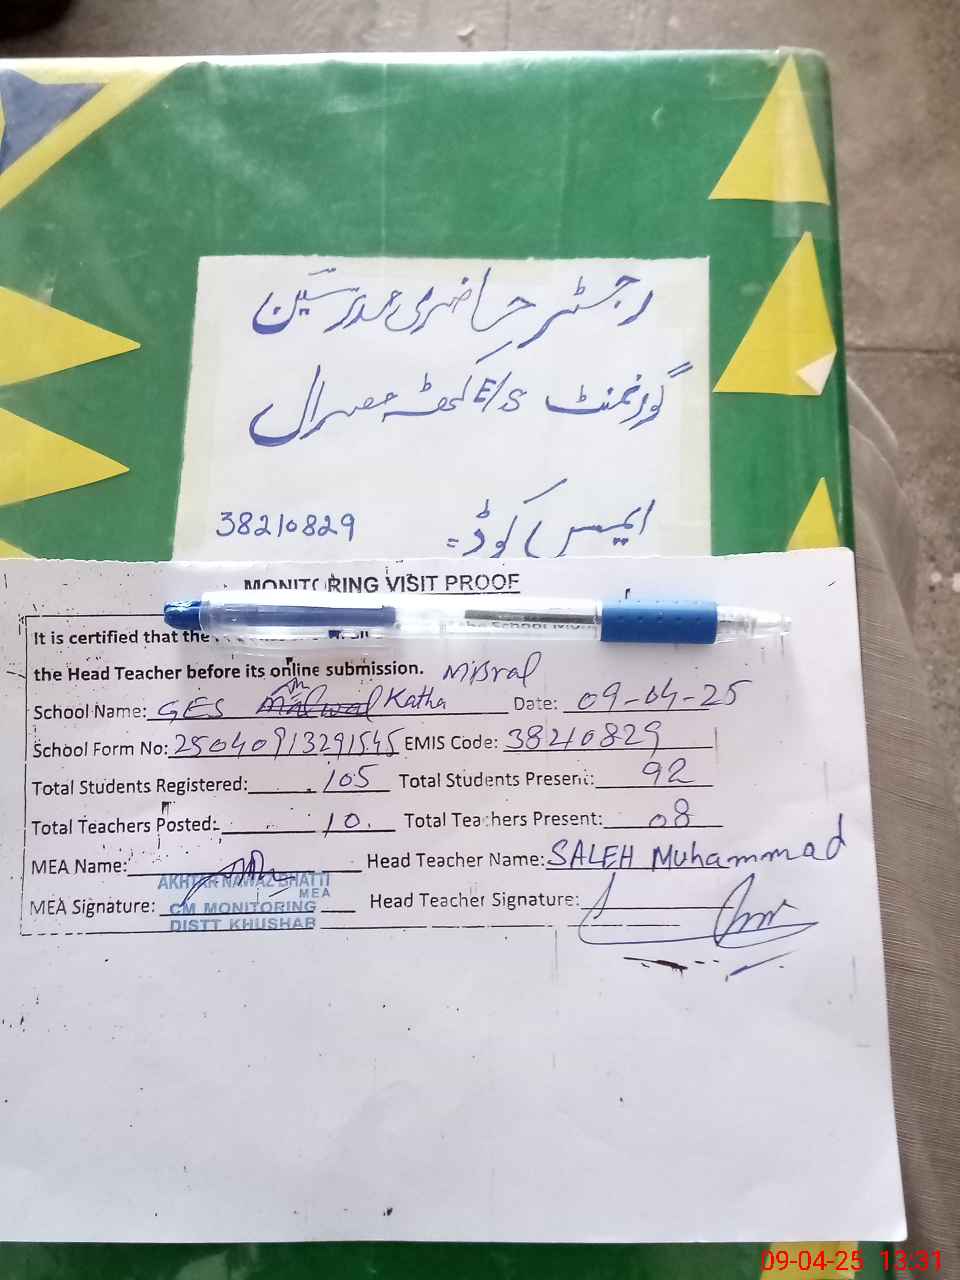 رجسٹر حاضری مدرسین
گورنمنٹ E/S کٹھہ مصرال
ایمس کوڈ =
38210829
MONITORING VISIT PROOF
It is certified that the
the Head Teacher before its online submission.
School Name: GES Katha Misral Date: 09-04-25
School Form No: 25040913291545 EMIS Code: 38210829
Total Students Registered: 105 Total Students Present: 92
Total Teachers Posted: 10. Total Teachers Present: 08
MEA Name: Head Teacher Name: SALEH Muhammad
AKHTAR NAWAZ BHATTI
MEA
MEA Signature: Head Teacher Signature:
CM MONITORING
DISTT KHUSHAB
09-04-25 13:31